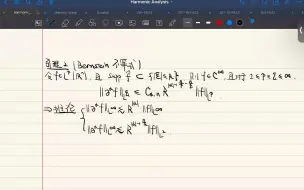 Harmonic Analysis
引理2 (Bernstein 不等式)
令 f∈L^p(R^n), 且 supp f̂ ⊂ {|ξ|≤R}, 则 f∈C^∞, 且对于 1≤p≤q≤∞,
‖∂^α f‖_q ≤ C_{α,n} R^{|α|+n/p-n/q} ‖f‖_p
⇒ 推论 { ‖∂^α f‖_{L^∞} ≲ R^{|α|} ‖f‖_∞
‖∂^α f‖_{L^∞} ≲ R^{|α|+n/2} ‖f‖_{L^2}